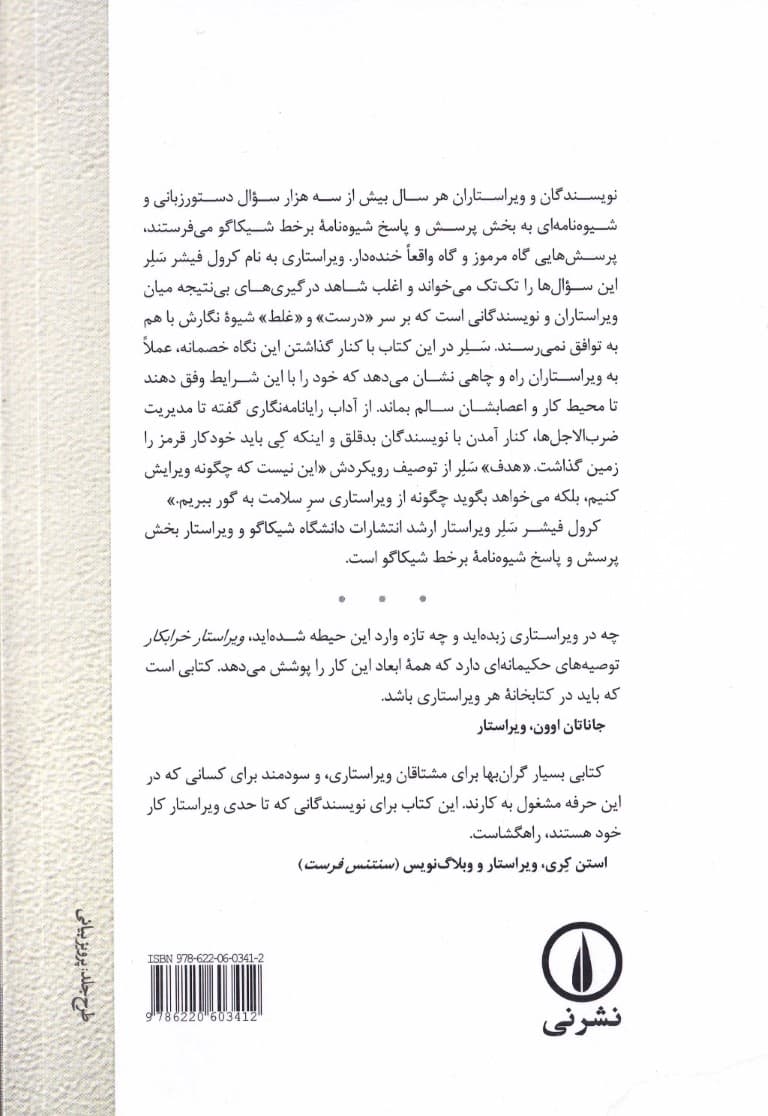 نویسندگان و ویراستاران هر سال بیش از سه هزار سؤال دستورزبانی و
شیوه‌نامه‌ای به بخش پرسش و پاسخ شیوه‌نامهٔ برخط شیکاگو می‌فرستند،
پرسش‌هایی گاه مرموز و گاه واقعاً خنده‌دار. ویراستاری به نام کرول فیشر سَلِر
این سؤال‌ها را تک‌تک می‌خواند و اغلب شاهد درگیری‌های بی‌نتیجه میان
ویراستاران و نویسندگانی است که بر سر «درست» و «غلط» شیوهٔ نگارش با هم
به توافق نمی‌رسند. سَلِر در این کتاب با کنار گذاشتن این نگاه خصمانه، عملاً
به ویراستاران راه و چاهی نشان می‌دهد که خود را با این شرایط وفق دهند
تا محیط کار و اعصابشان سالم بماند. از آداب رایانامه‌نگاری گفته تا مدیریت
ضرب‌الاجل‌ها، کنار آمدن با نویسندگان بدقلق و اینکه کِی باید خودکار قرمز را
زمین گذاشت. «هدف» سَلِر از توصیف رویکردش «این نیست که چگونه ویرایش
کنیم، بلکه می‌خواهد بگوید چگونه از ویراستاری سرِ سلامت به گور ببریم.»
کرول فیشر سَلِر ویراستار ارشد انتشارات دانشگاه شیکاگو و ویراستار بخش
پرسش و پاسخ شیوه‌نامهٔ برخط شیکاگو است.
• • •
چه در ویراستاری زبده‌اید و چه تازه وارد این حیطه شده‌اید، ویراستار خرابکار
توصیه‌های حکیمانه‌ای دارد که همهٔ ابعاد این کار را پوشش می‌دهد. کتابی است
که باید در کتابخانهٔ هر ویراستاری باشد.
جاناتان اوون، ویراستار
کتابی بسیار گران‌بها برای مشتاقان ویراستاری، و سودمند برای کسانی که در
این حرفه مشغول به کارند. این کتاب برای نویسندگانی که تا حدی ویراستار کار
خود هستند، راهگشاست.
استن کِری، ویراستار و وبلاگ‌نویس (سنتنس فرست)
طرح جلد: پرویز بیانی
ISBN 978-622-06-0341-2
9 786220 603412
نشرنی